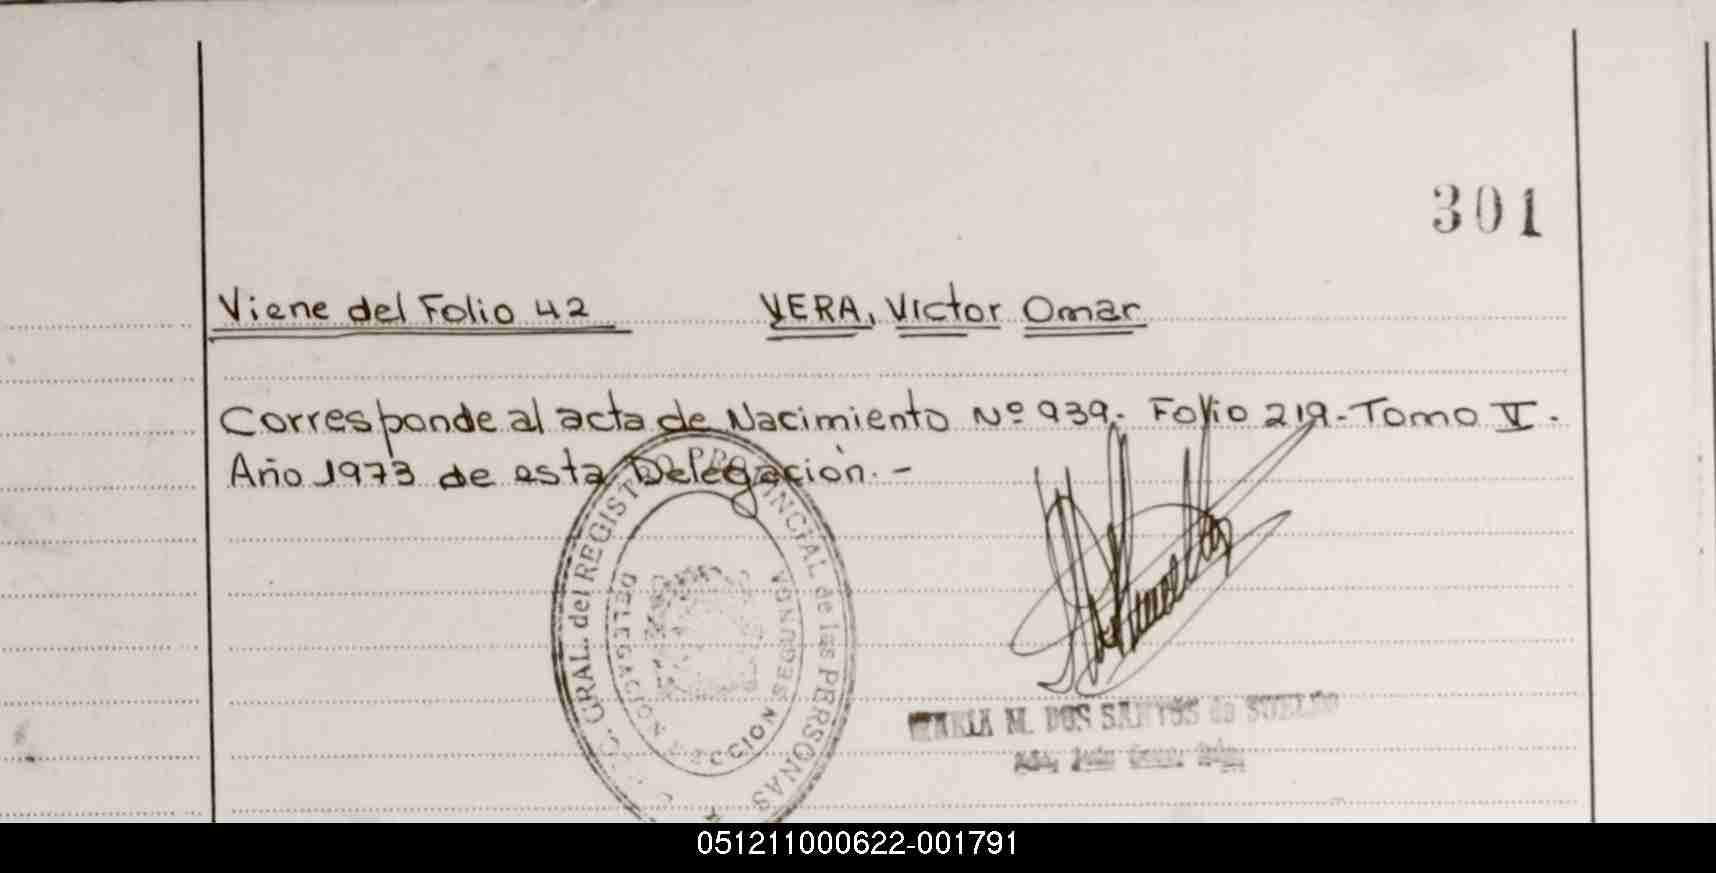 301
Viene del Folio 42 VERA, Victor Omar
Corresponde al acta de Nacimiento Nº 939.- Folio 219.- Tomo V.-
Año 1973 de esta Delegación.-
GRAL. del REGISTRO PROVINCIAL de las PERSONAS
DELEGACION SECCION SEGUNDA
MARIA M. DOS SANTOS de
051211000622-001791